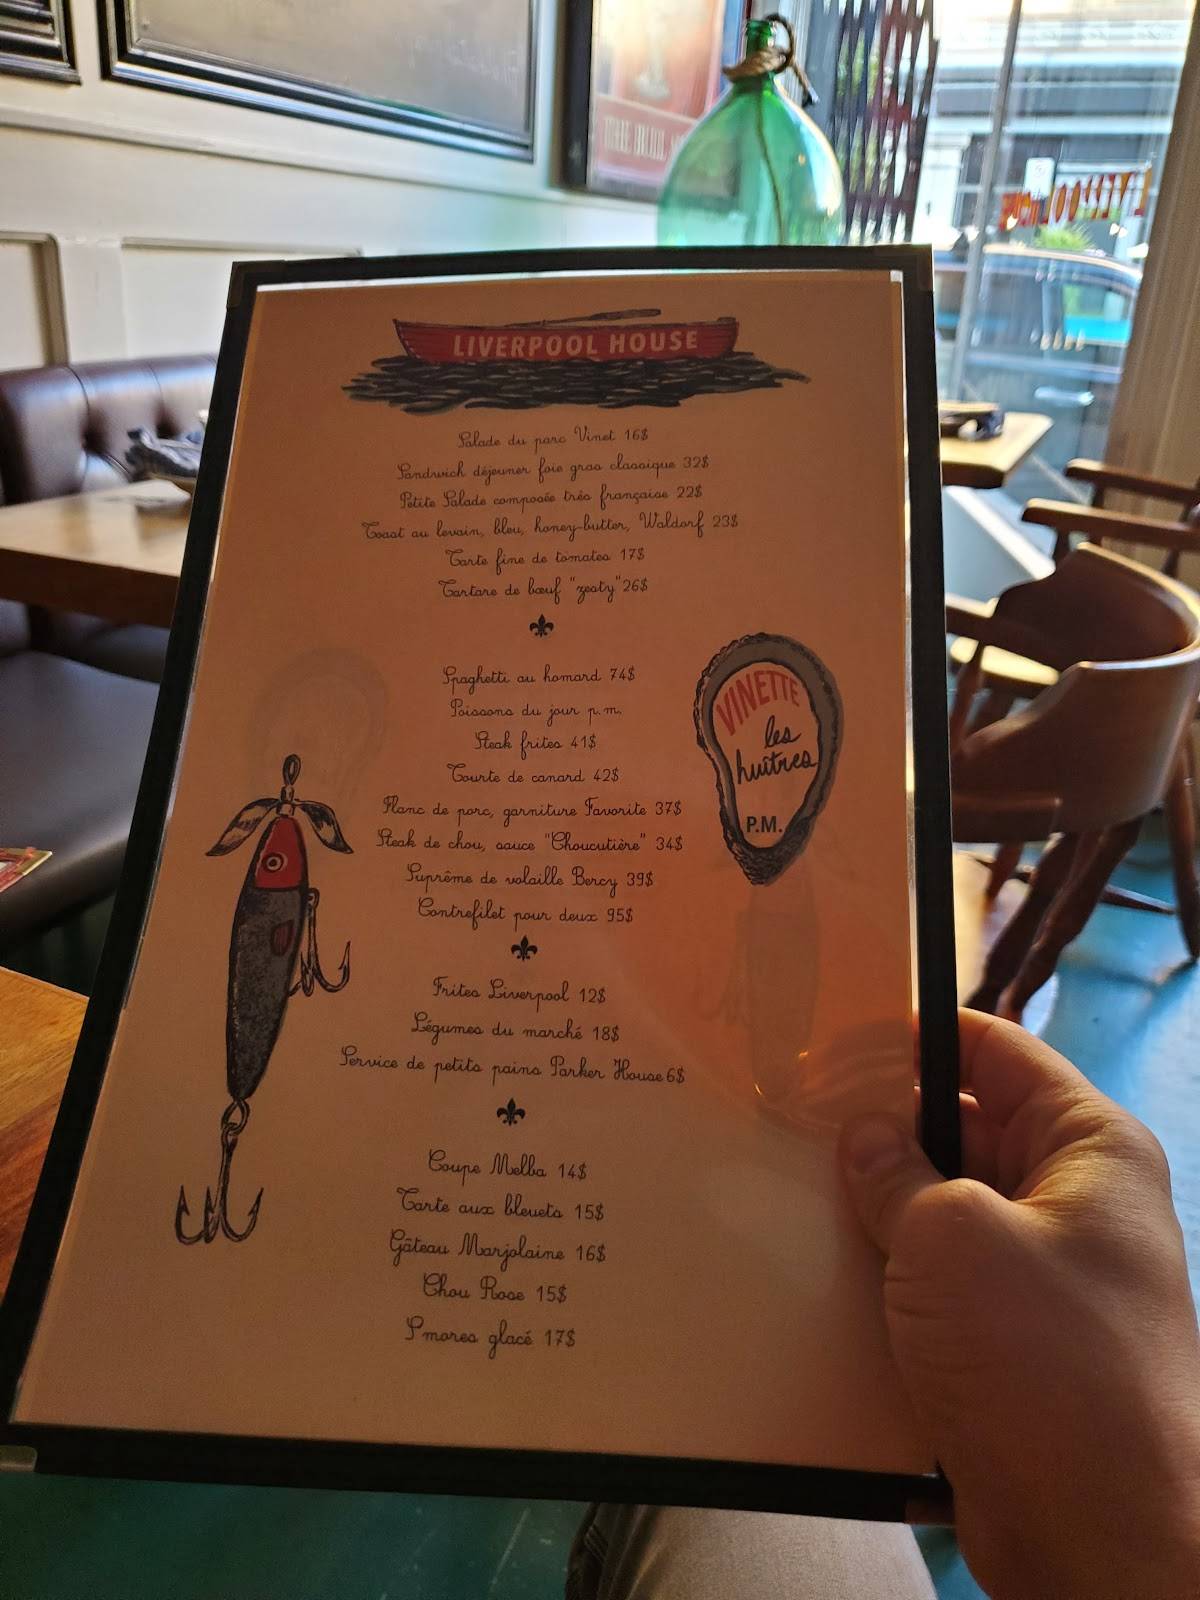 THE BLUE
LIVERPOOL HOUSE
Salade du parc Vinet 16$
Sandwich déjeuner foie gras classique 32$
Petite Salade composée très française 22$
Toast au levain, bleu, honey-butter, Waldorf 23$
Tarte fine de tomates 17$
Tartare de bœuf "zesty" 26$
Spaghetti au homard 74$
Poissons du jour p.m.
Steak frites 41$
Tourte de canard 42$
Flanc de porc, garniture Favorite 37$
Steak de chou, sauce "Choucutière" 34$
Suprême de volaille Bercy 39$
Contrefilet pour deux 95$
VINETTE
les
huîtres
P.M.
Frites Liverpool 12$
Légumes du marché 18$
Service de petits pains Parker House 6$
Coupe Melba 14$
Tarte aux bleuets 15$
Gâteau Marjolaine 16$
Chou Rose 15$
S'mores glacé 17$